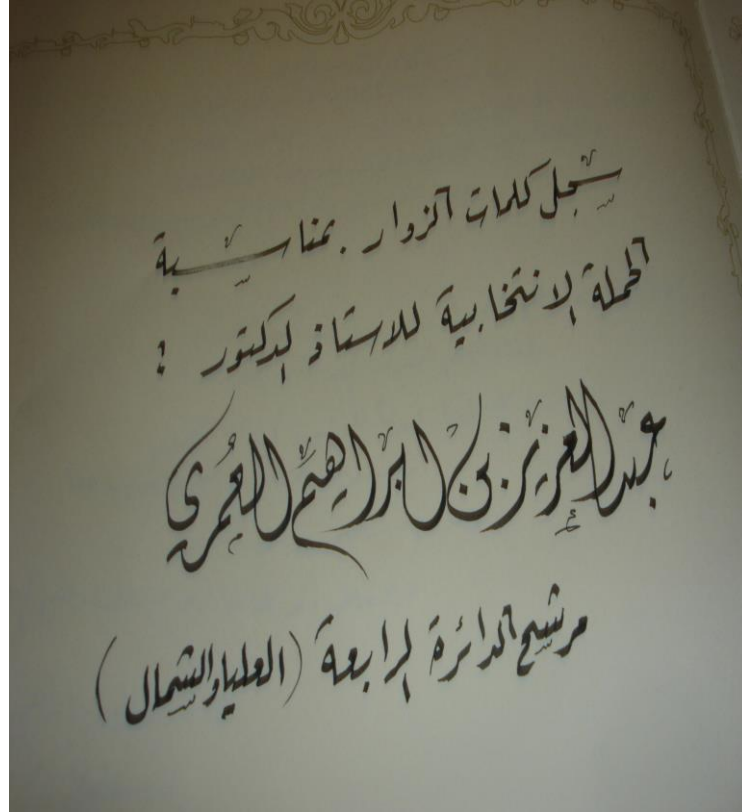 سجل كلمات الزوار . بمناسبة
الحملة الانتخابية للاستاذ الدكتور :
عبدالعزيز بن ابراهيم العُمري
مرشح الدائرة الرابعة (العليا والشمال)